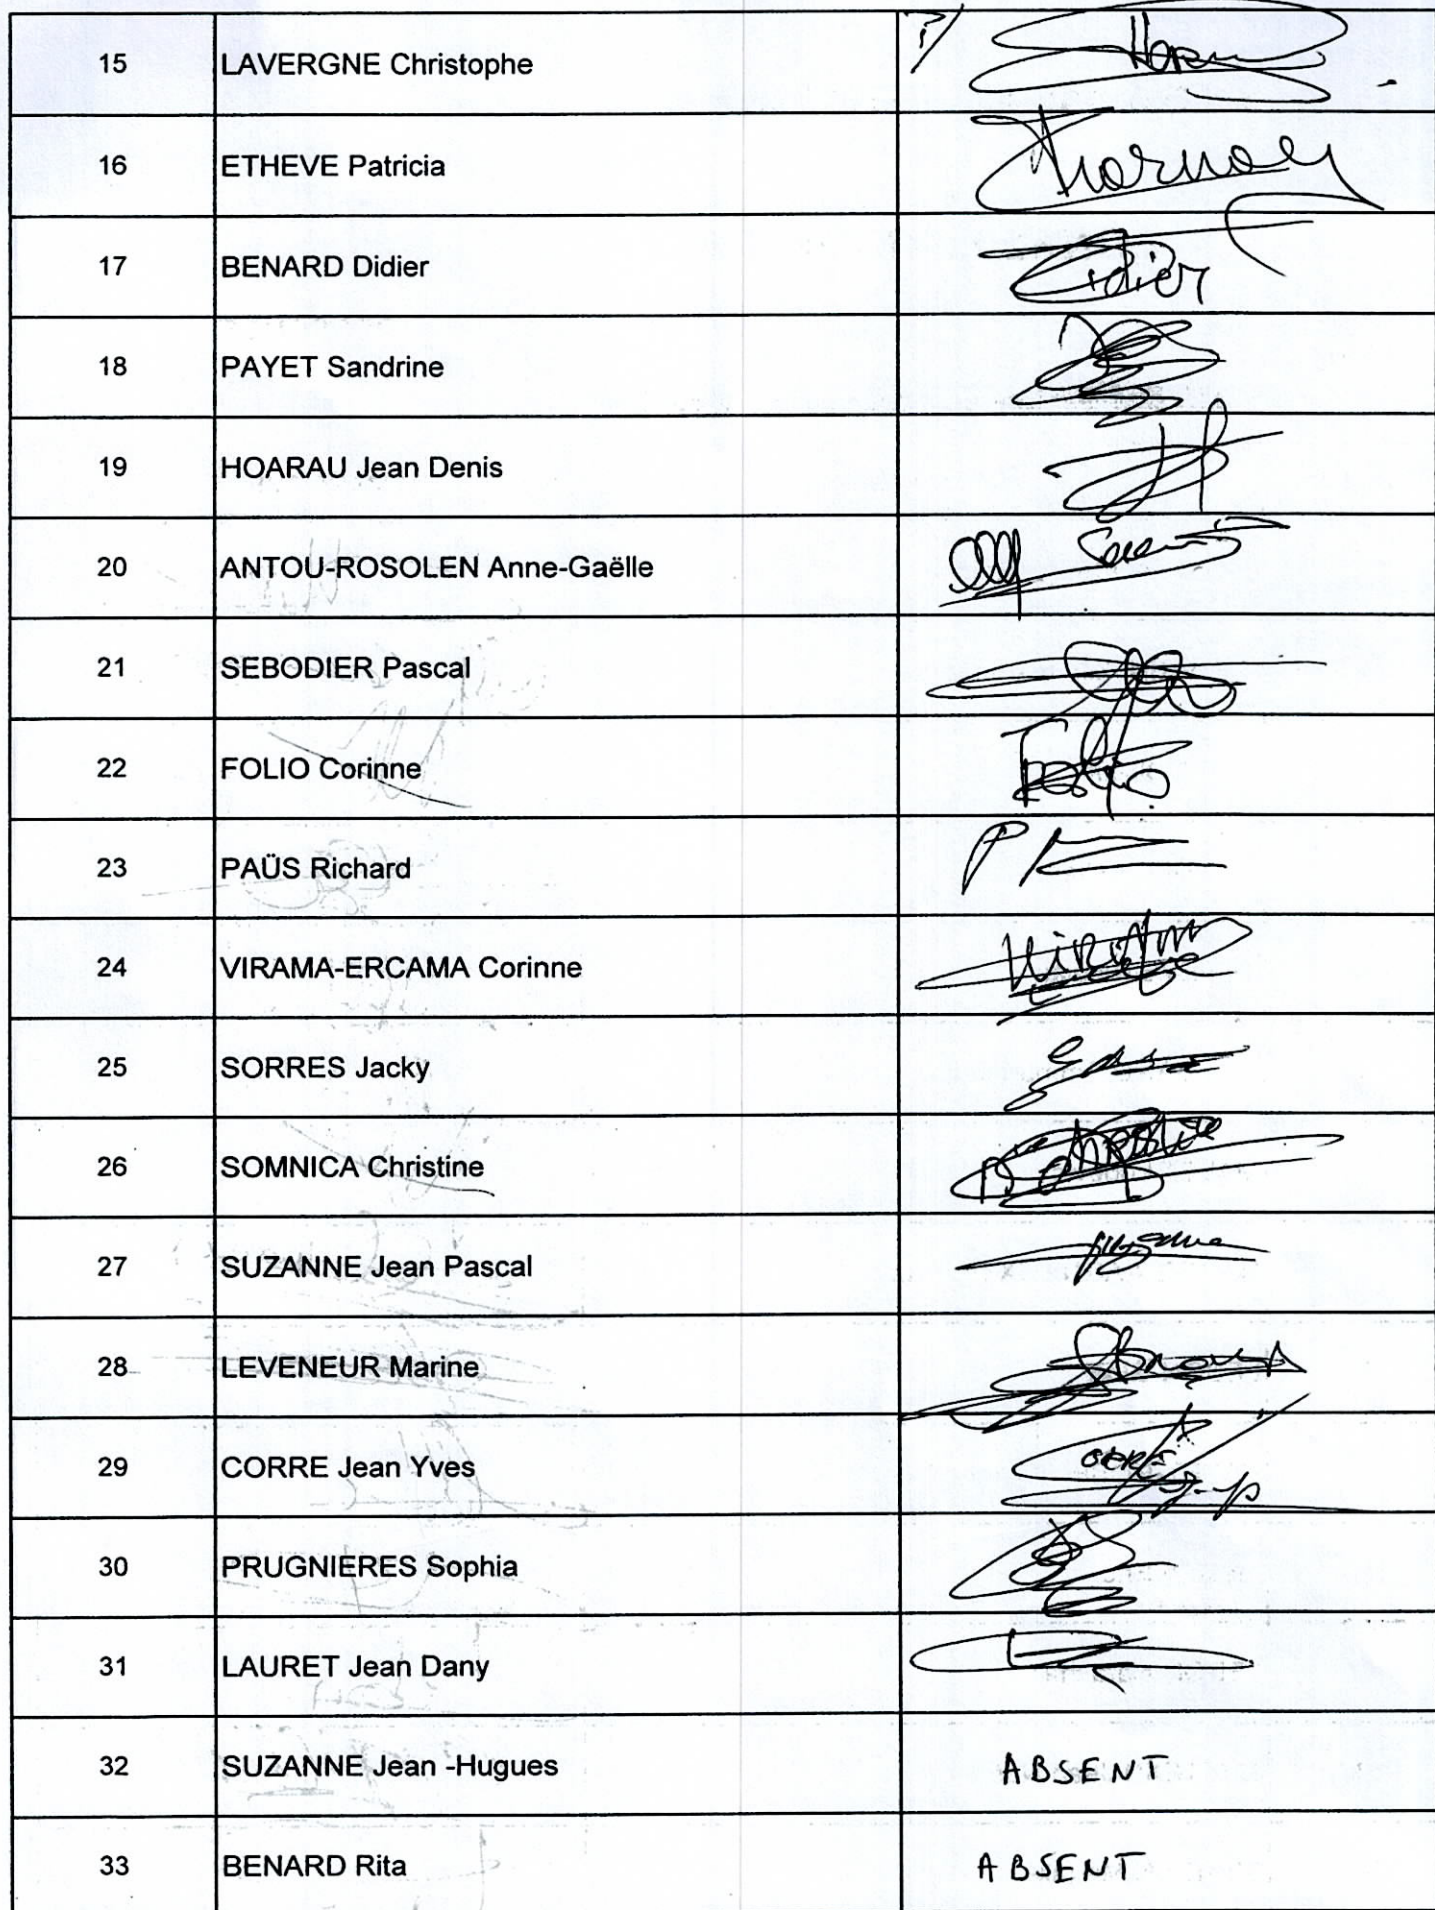 15 LAVERGNE Christophe P/
16 ETHEVE Patricia
17 BENARD Didier Didier
18 PAYET Sandrine
19 HOARAU Jean Denis
20 ANTOU-ROSOLEN Anne-Gaëlle
21 SEBODIER Pascal
22 FOLIO Corinne Folio
23 PAÜS Richard
24 VIRAMA-ERCAMA Corinne
25 SORRES Jacky
26 SOMNICA Christine
27 SUZANNE Jean Pascal
28 LEVENEUR Marine
29 CORRE Jean Yves
30 PRUGNIERES Sophia
31 LAURET Jean Dany
32 SUZANNE Jean -Hugues ABSENT
33 BENARD Rita ABSENT